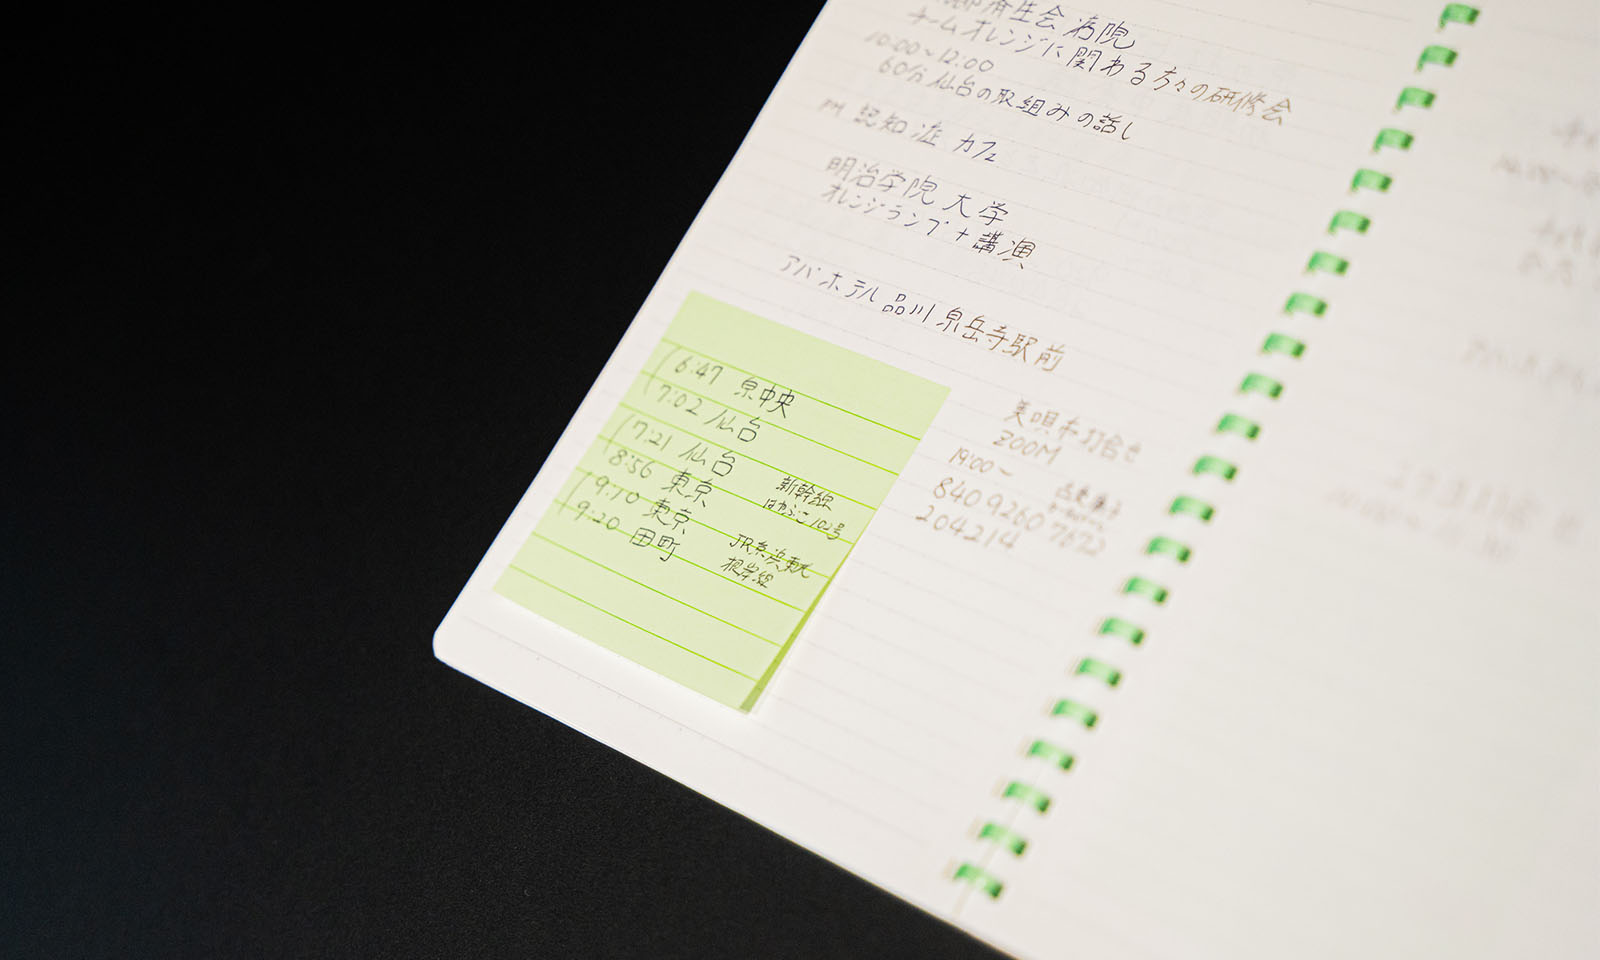 済生会 病院
チームオレンジに関わる方々の研修会
10:00〜12:00
60分 仙台の取組みの話し
PM 認知症 カフェ
明治学院 大学
オレンジランプ+講演
アパホテル 品川 泉岳寺駅前
6:47 泉中央
7:02 仙台
7:21 仙台
8:56 東京
新幹線
はやぶさ102号
9:10 東京
9:20 田町
JR京浜東北
根岸線
美唄市打合せ
ZOOM
19:00〜
840 9260 7672
204214